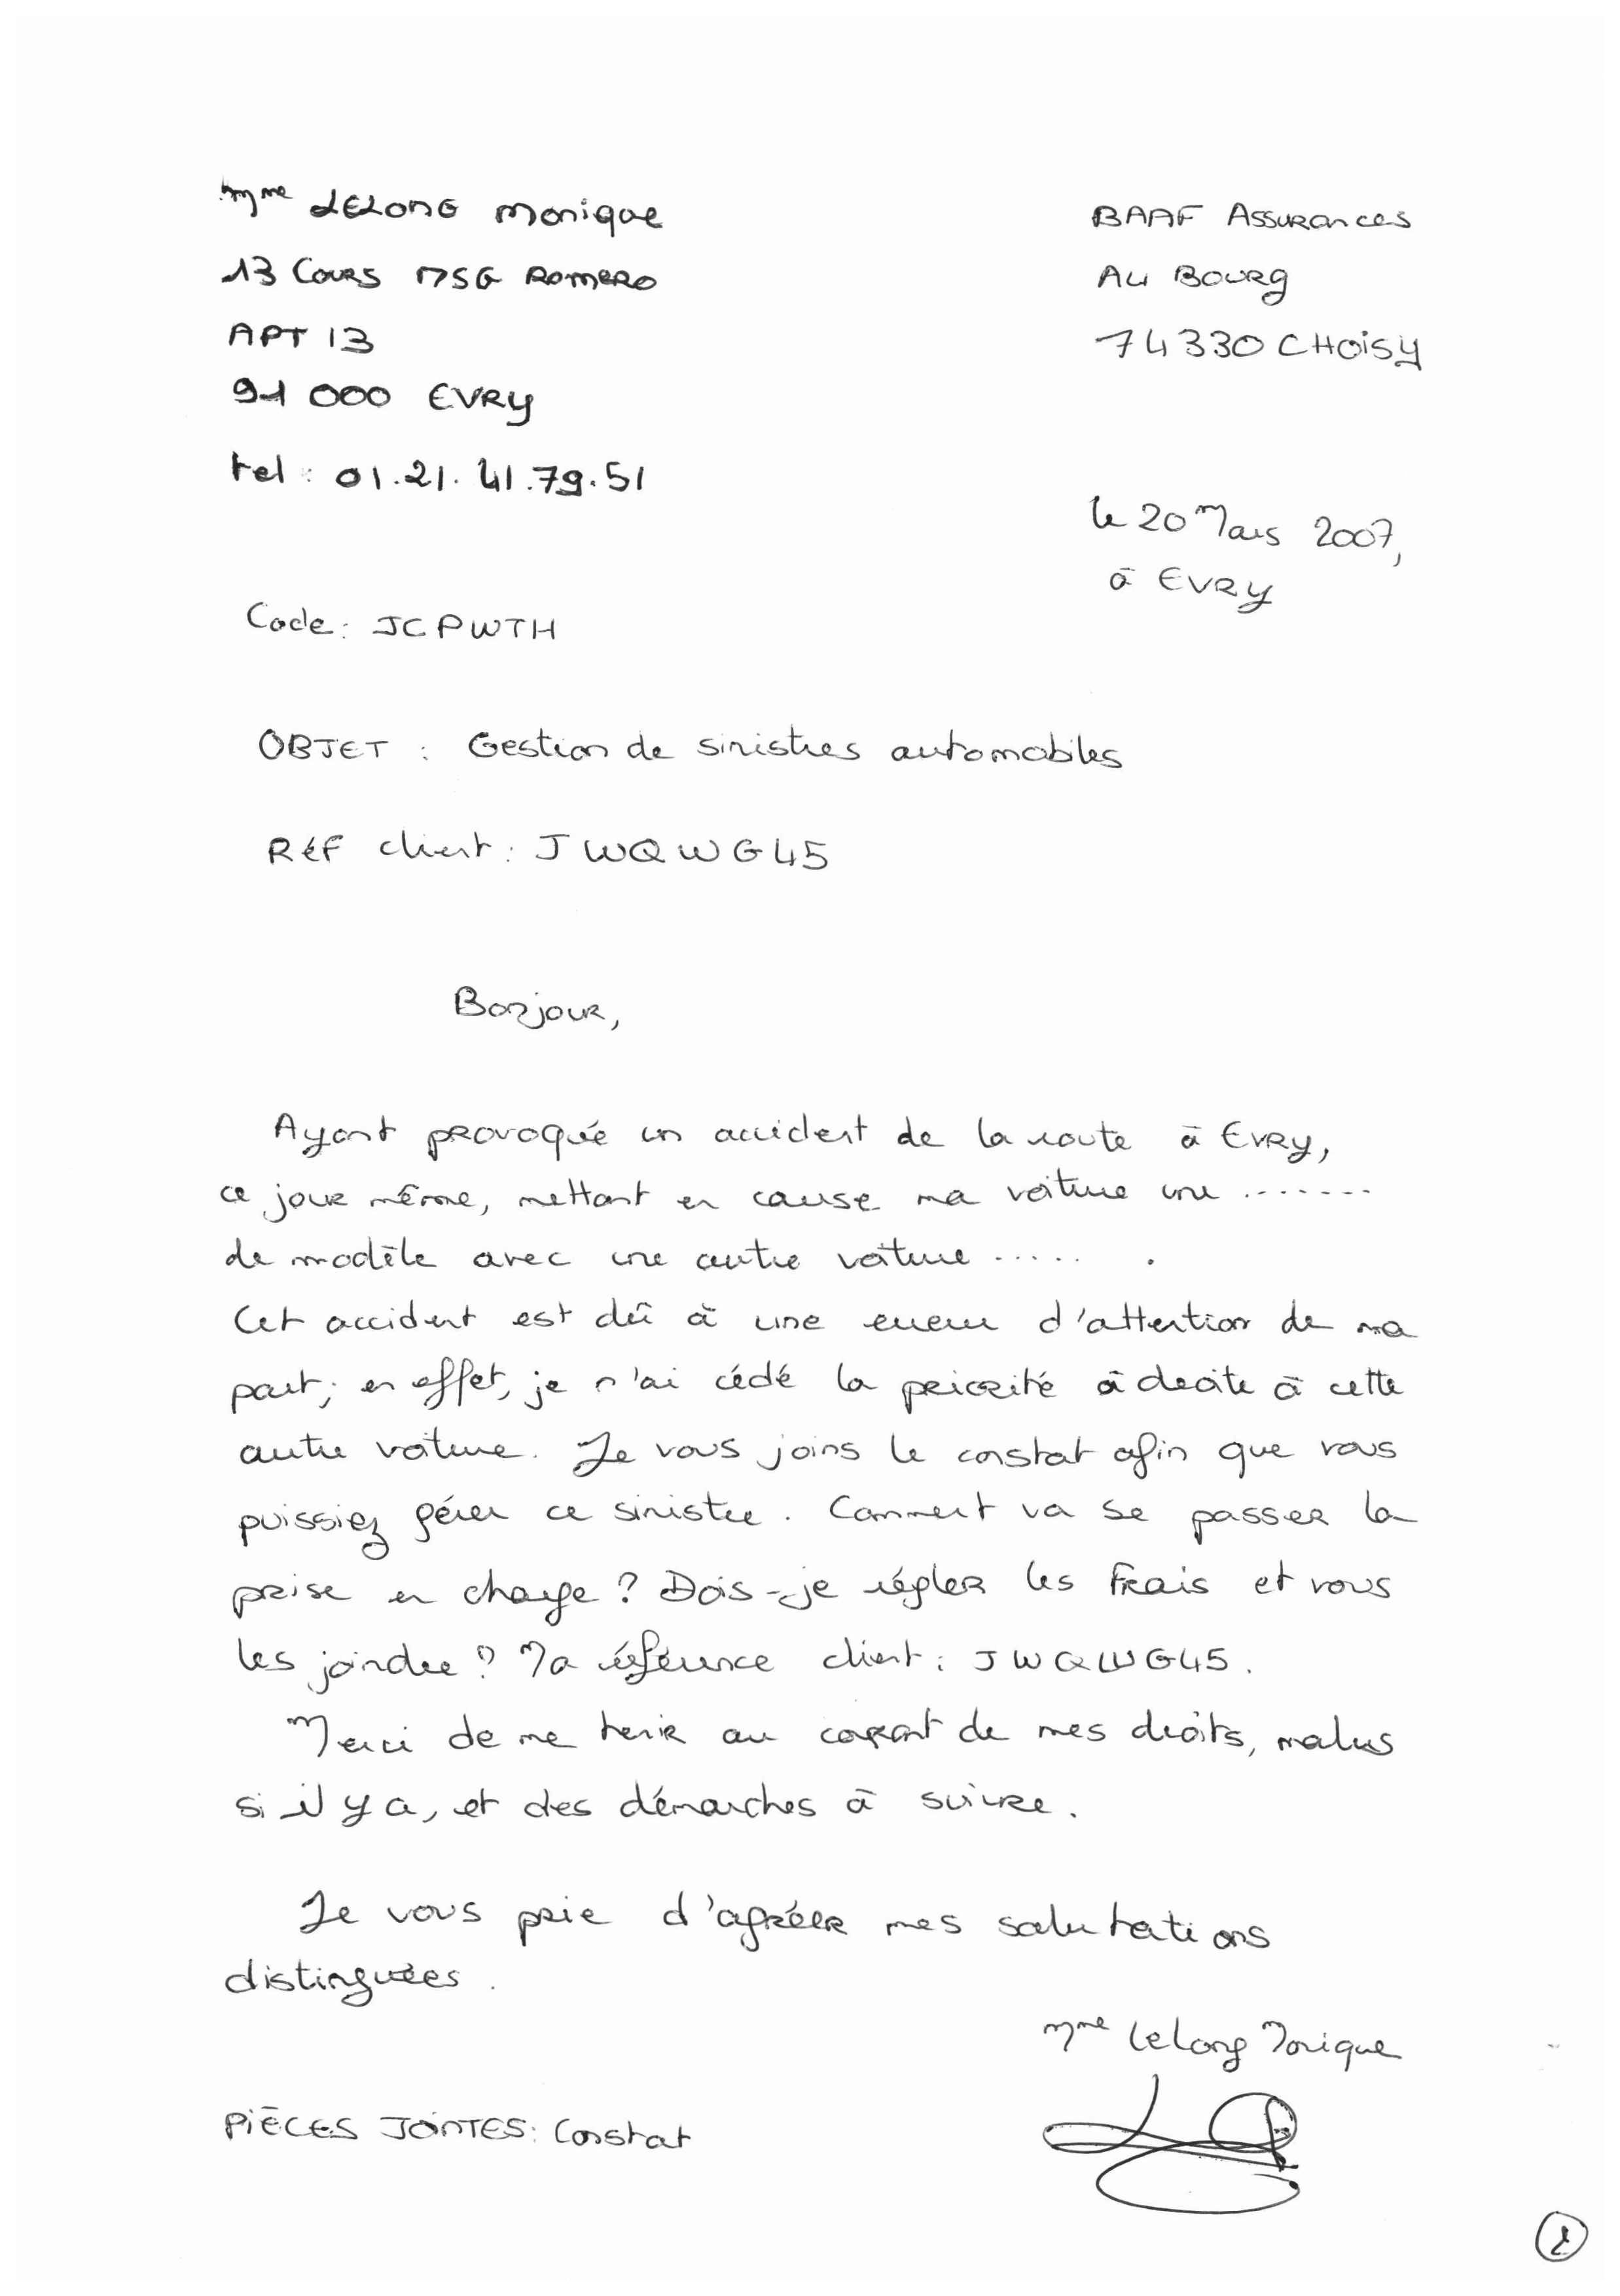 Mme LELONG Monique
13 Cours MSG ROMERO
APT 13
91 000 EVRY
tel : 01.21.41.79.51
BAAF Assurances
Au Bourg
74330 CHOISY
le 20 Mars 2007,
à EVRY
Code : JCPWTH
OBJET : Gestion de sinistres automobiles
Réf client : JWQWG45
Bonjour,
Ayant provoquée un accident de la route à Evry,
ce jour même, mettant en cause ma voiture une .......
de modèle avec une autre voiture ..... .
Cet accident est dû à une erreur d'attention de ma
part; en effet, je n'ai cédé la priorité à droite à cette
autre voiture. Je vous joins le constat afin que vous
puissiez gérer ce sinistre. Comment va se passer la
prise en charge ? Dois-je régler les frais et vous
les joindre ? Ma référence client : JWQWG45.
Merci de me tenir au courant de mes droits, malus
si il y a, et des démarches à suivre.
Je vous prie d'agréer mes salutations
distinguées.
Mme Lelong Monique
PIÈCES JOINTES : Constat